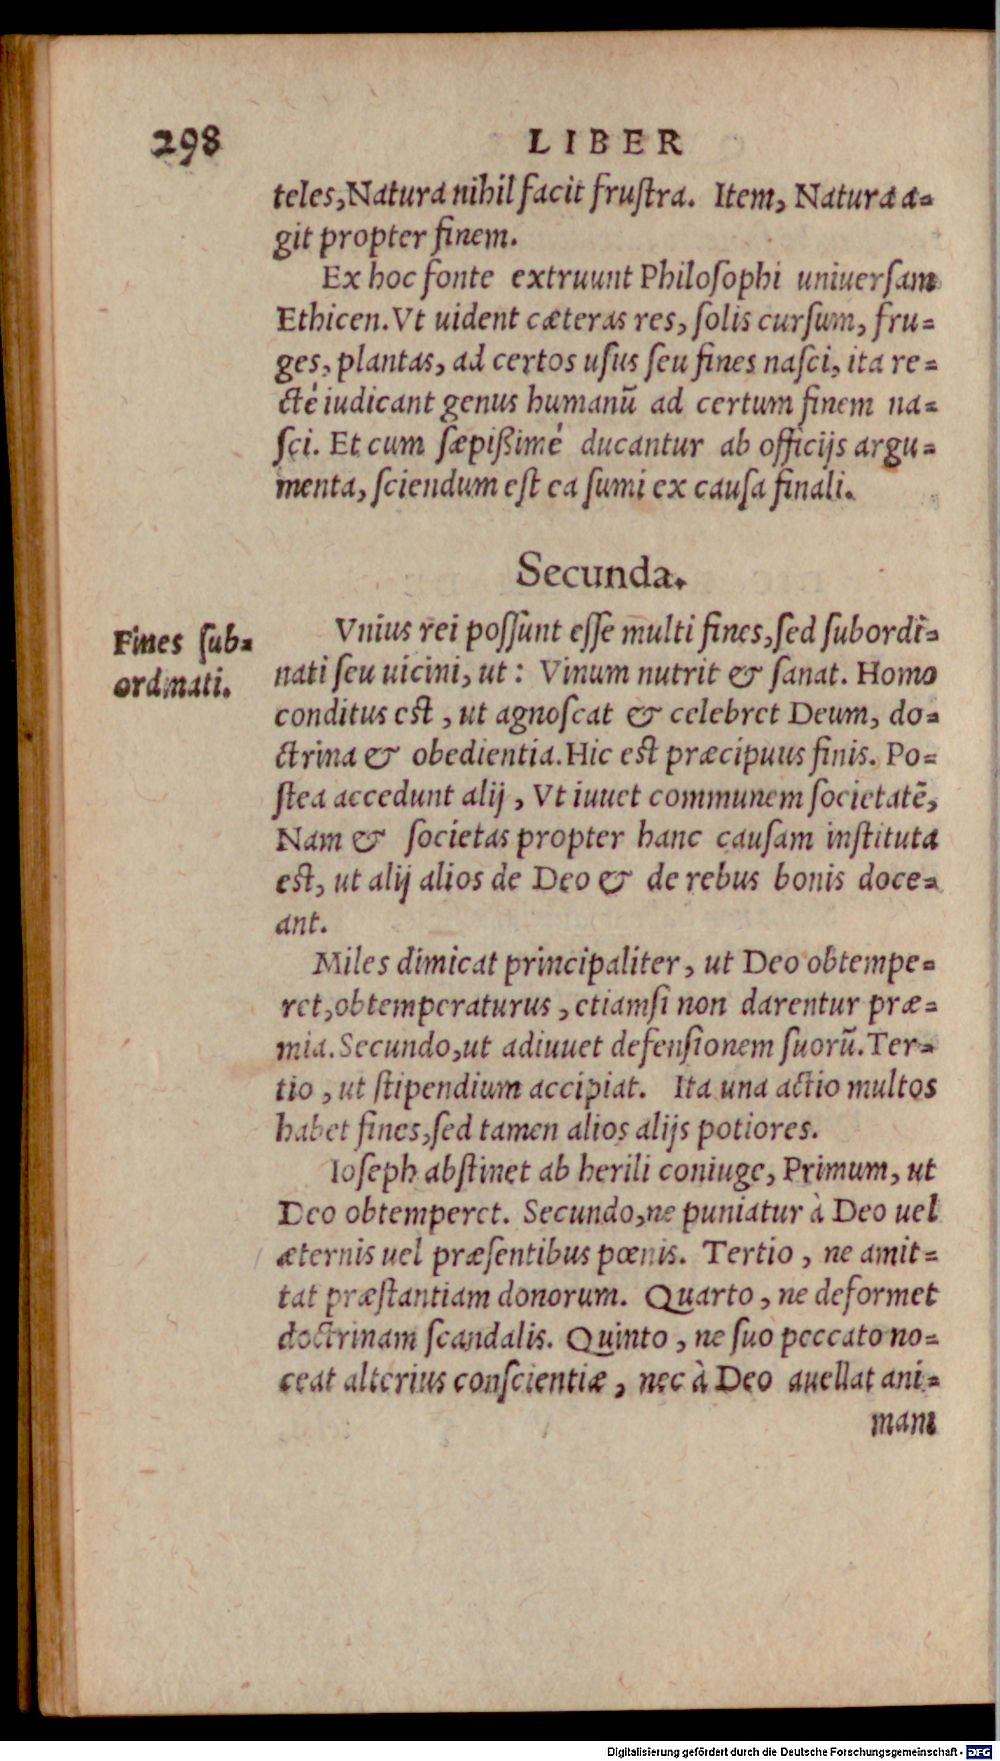 298 LIBER
teles, Natura nihil facit fruſtra. Item, Natura a-
git propter finem.
Ex hoc fonte extruunt Philoſophi uniuerſam
Ethicen. Vt uident cæteras res, ſolis curſum, fru-
ges, plantas, ad certos uſus ſeu fines naſci, ita re-
ctè iudicant genus humanũ ad certum finem na-
ſci. Et cum ſæpißimè ducantur ab officijs argu-
menta, ſciendum eſt ea ſumi ex cauſa finali.
Secunda.
Fines ſub-
ordinati.
Vnius rei poſſunt eſſe multi fines, ſed ſubordi-
nati ſeu uicini, ut: Vinum nutrit & ſanat. Homo
conditus eſt, ut agnoſcat & celebret Deum, do-
ctrina & obedientia. Hic eſt præcipuus finis. Po-
ſtea accedunt alij, Vt iuuet communem ſocietatẽ,
Nam & ſocietas propter hanc cauſam inſtituta
eſt, ut alij alios de Deo & de rebus bonis doce-
ant.
Miles dimicat principaliter, ut Deo obtempe-
ret, obtemperaturus, etiamſi non darentur præ-
mia. Secundo, ut adiuuet defenſionem ſuorũ. Ter-
tio, ut ſtipendium accipiat. Ita una actio multos
habet fines, ſed tamen alios alijs potiores.
Ioſeph abſtinet ab herili coniuge, Primum, ut
Deo obtemperet. Secundo, ne puniatur à Deo uel
æternis uel præſentibus pœnis. Tertio, ne amit-
tat præſtantiam donorum. Quarto, ne deformet
doctrinam ſcandalis. Quinto, ne ſuo peccato no-
ceat alterius conſcientiæ, nec à Deo auellat ani-
mam
Digitalisierung gefördert durch die Deutsche Forschungsgemeinschaft - DFG